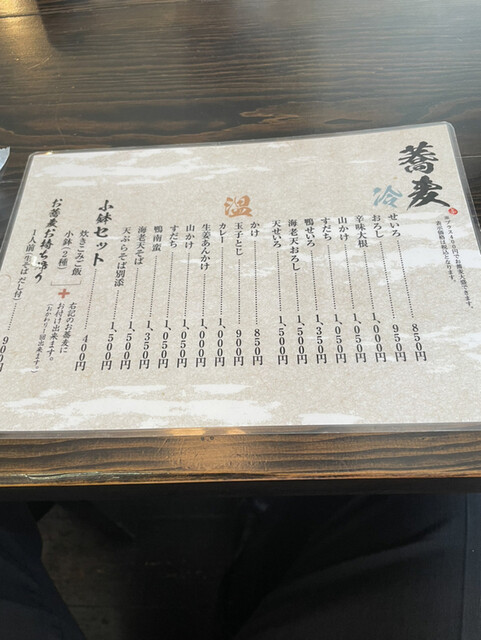 蕎麦
冷
せいろ 850円
おろし 950円
辛味大根
山かけ 1,050円
すだち 1,050円
鴨せいろ 1,350円
海老天おろし 1,500円
天せいろ 1,500円
温
かけ 850円
玉子とじ 900円
カレー 1,000円
生姜あんかけ 1,000円
山かけ
すだち 1,050円
鴨南蛮 1,350円
海老天そば
天ぷらそば別添 1,500円
小鉢セット
炊きこみご飯 400円
小鉢(2種)
+
右記のお蕎麦に
お付け出来ます。
(おかわり一回出来ます。)
お蕎麦お持ち帰り
1人前(生そば、だし付) 900円